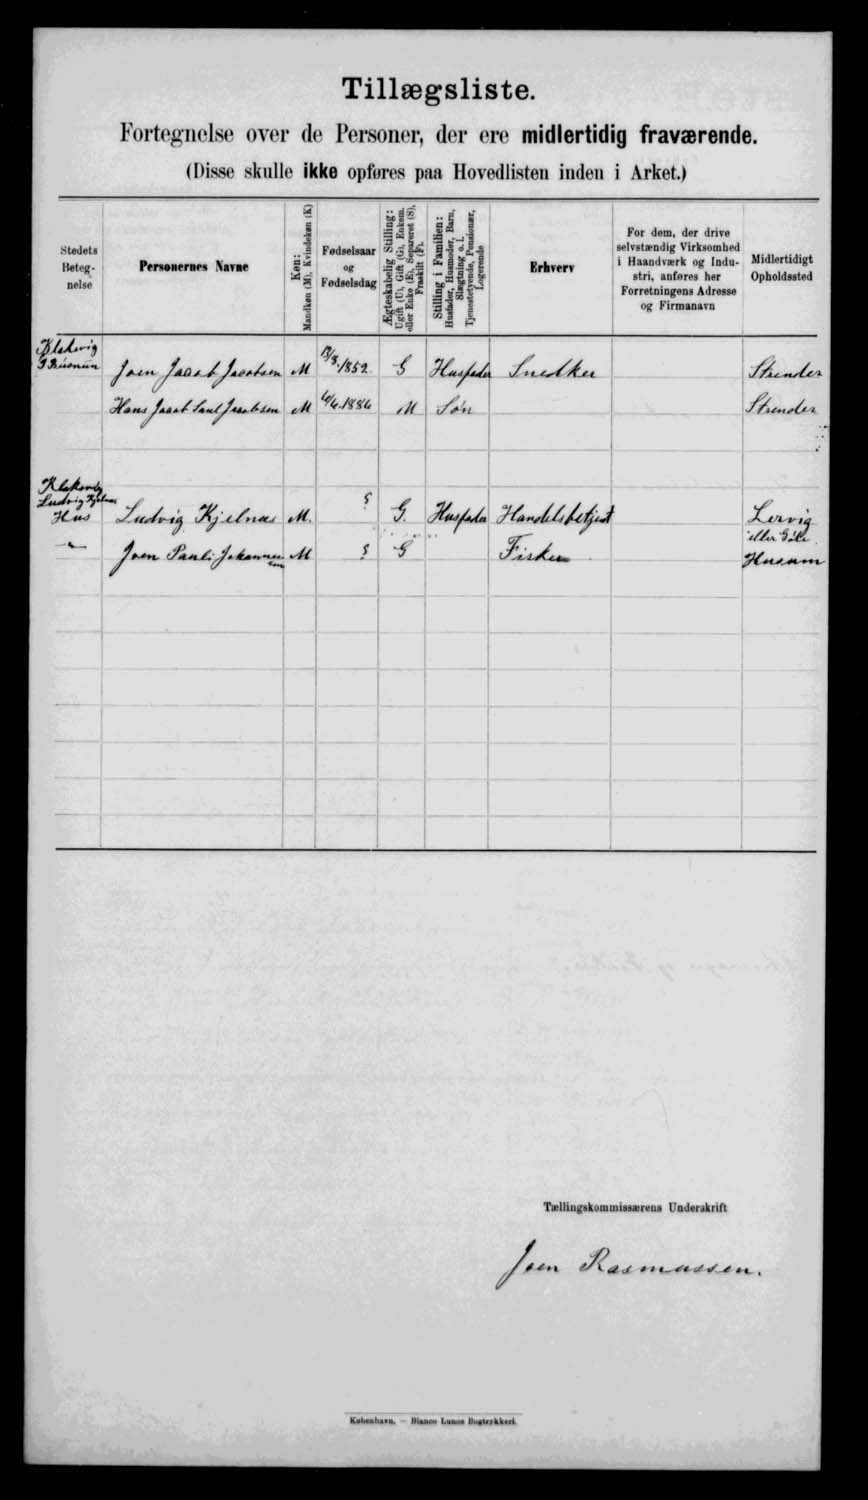 Tillægsliste.
Fortegnelse over de Personer, der ere midlertidig fraværende.
(Disse skulle ikke opføres paa Hovedlisten inden i Arket.)
Stedets Betegnelse
Personernes Navne
Køn:
Mandkøn (M), Kvindekøn (K)
Fødselsaar
og
Fødselsdag
Ægteskabelig Stilling:
Ugift (U), Gift (G), Enkem.
eller Enke (E), Separeret (S),
Fraskilt (F).
Stilling i Familien:
Husfader, Husmoder, Barn,
Slægtning o. l.
Tjenestetyende, Pensionær,
Logerende
Erhverv
For dem, der drive
selvstændig Virksomhed
i Haandværk og Indu-
stri, anføres her
Forretningens Adresse
og Firmanavn
Midlertidigt
Opholdssted
Joen Jacob Jacobsen M 1852 G Husfader Snedker Strender
Hans Jacob Jacobsen M 1886 M Søn Strender
Klaksvig
Ludvig
Hus Ludvig Kjelnæs M. ? G. Husfader Handelsbetjent Lervig
eller
" Joen Pauli M ? G Fisker Husum
Tællingskommissærens Underskrift
Joen Rasmussen.
København. — Bianco Lunos Bogtrykkeri.